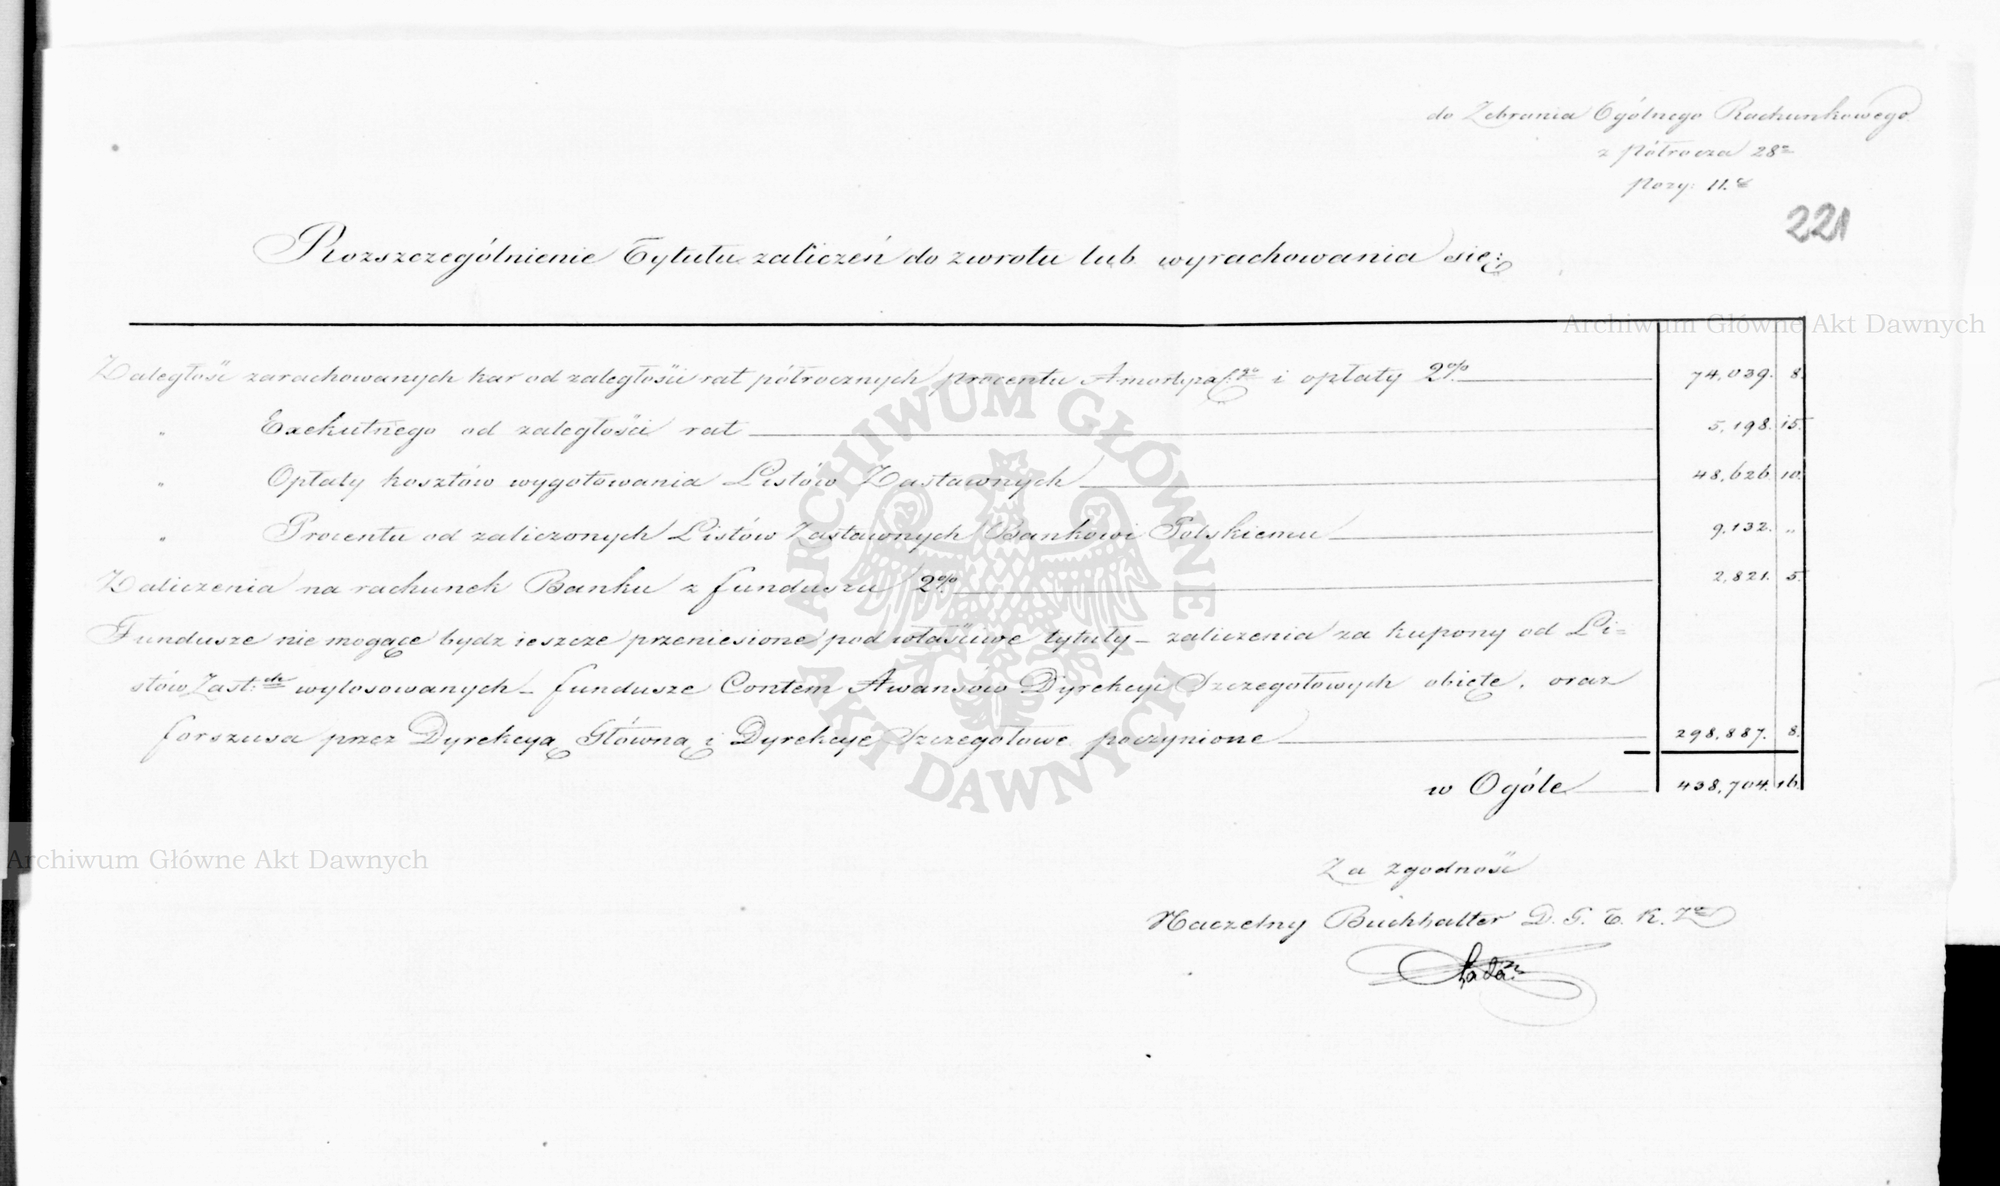 do Zebrania Ogólnego Rachunkowego
z Półrocza 28º
pozy: 11.
221
Rozszczególnienie Tytułu zaliczeń do zwrotu lub wyrachowania się:
Zaległość zarachowanych kar od zaległości rat półrocznych procentu i opłaty 2% 74,039. 8.
" Exekutnego od zaległości rat 5,198. 15.
" Opłaty kosztów wygotowania Listów Zastawnych 48,626. 10.
" Procentu od zaliczonych Listów Zastawnych Bankowi Polskiemu 9,132. "
Zaliczenia na rachunek Banku z funduszu 2% 2,821. 5.
Fundusze nie mogące bydz ieszcze przeniesione pod właściwe tytuły – zaliczenia za kupony od Li=
stów Zast: wylosowanych – fundusze Contem Awansów Dyrekcyi Szczegółowych obięte, oraz
forszusa przez Dyrekcyą Główną i Dyrekcye Szczegółowe poczynione 298,887. 8.
w Ogóle 438,704. 16.
Za zgodność
Naczelny Buchhalter D. G. T. K. Zº
Archiwum Główne Akt Dawnych
Archiwum Główne Akt Dawnych
ARCHIWUM GŁÓWNE AKT DAWNYCH